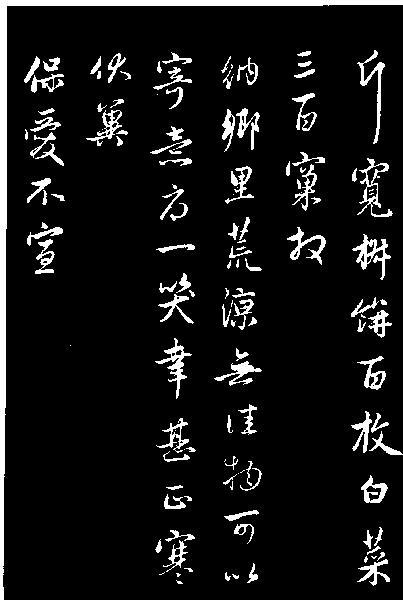 斤寬餅百枚白菜
三百窠收
納鄉里荒涼無佳物可以
寄意方一笑幸甚正寒
伏冀
保愛不宣